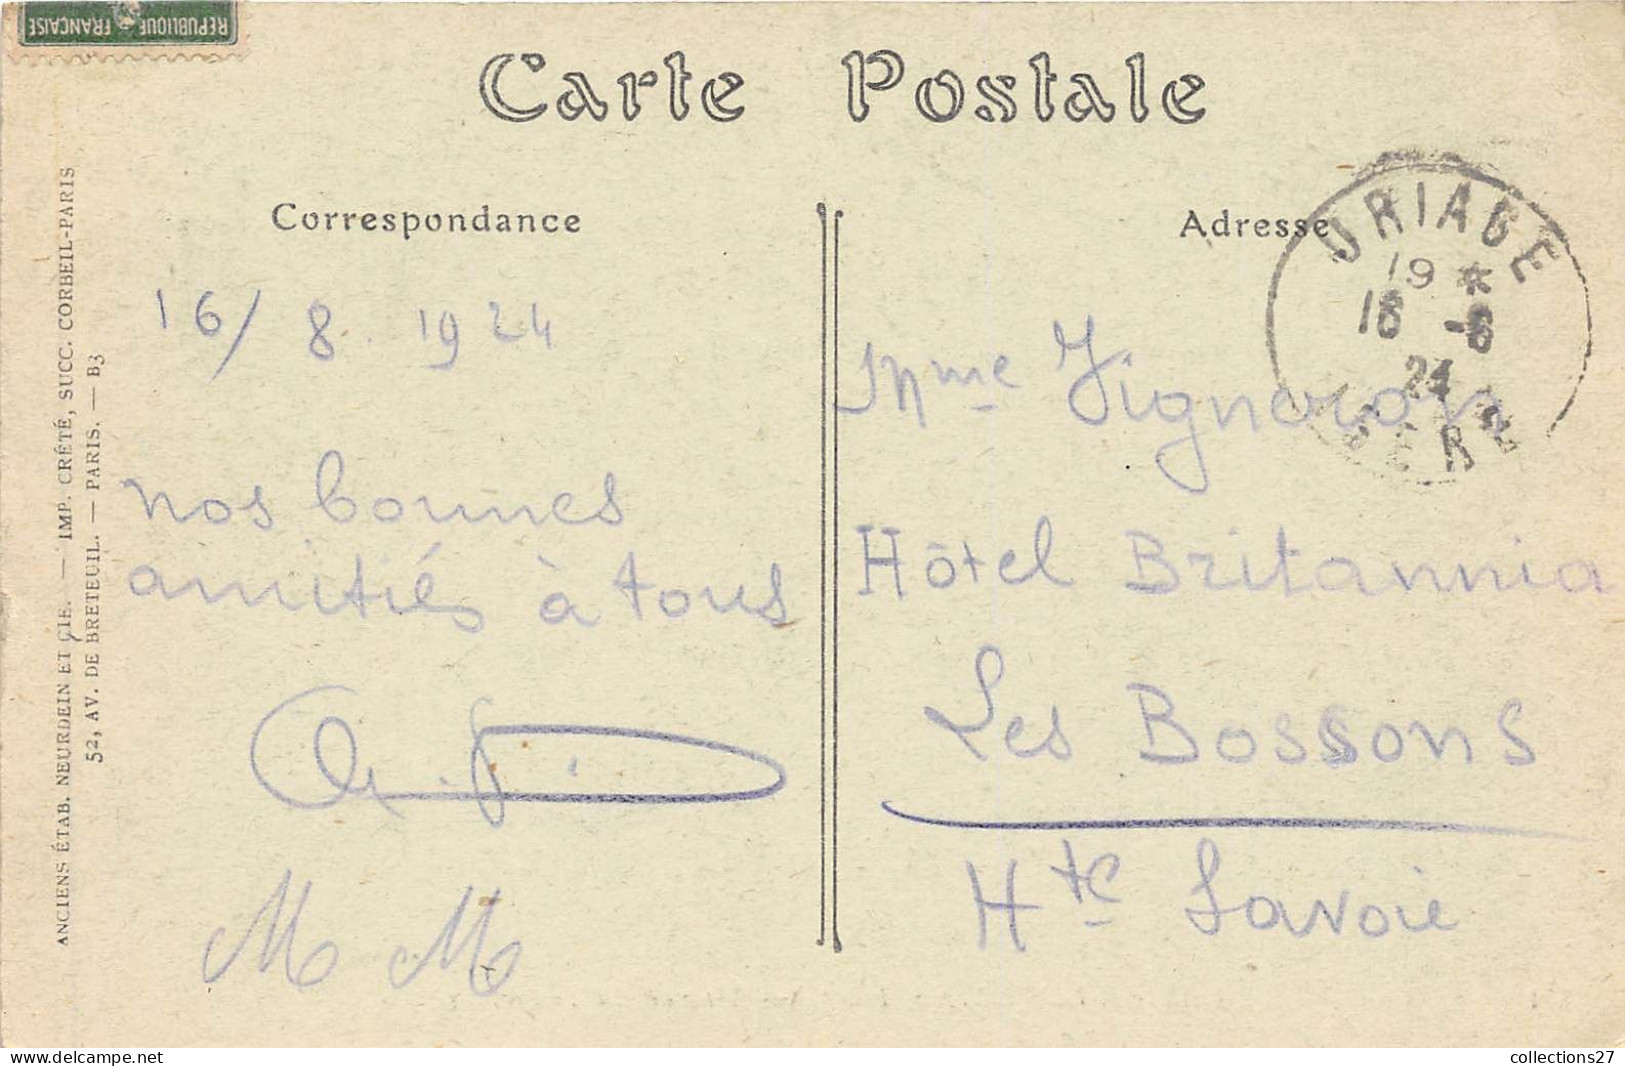 REPUBLIQUE FRANCAISE
Carte Postale
Correspondance
Adresse
URIAGE
19 *
16 -8
24
ISERE
ANCIENS ÉTAB. NEURDEIN ET CIE. — IMP. CRÉTÉ, SUCC. CORBEIL-PARIS
52, AV. DE BRETEUIL. — PARIS. — B3
16/ 8. 1924
nos bonnes
amitiés à tous
M M
Mme Vigneron
Hôtel Britannia
Les Bossons
Hte Savoie
collections27